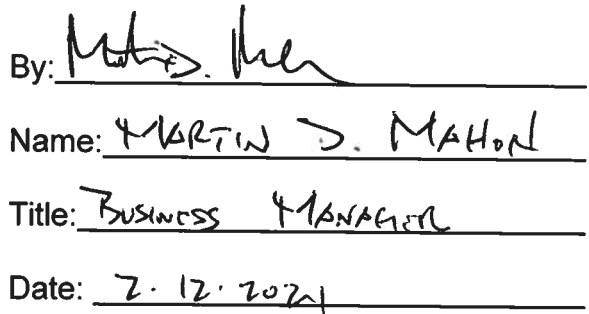 By: Martin D. Mahon
Name: MARTIN D. MAHON
Title: BUSINESS MANAGER
Date: 2.12.2021